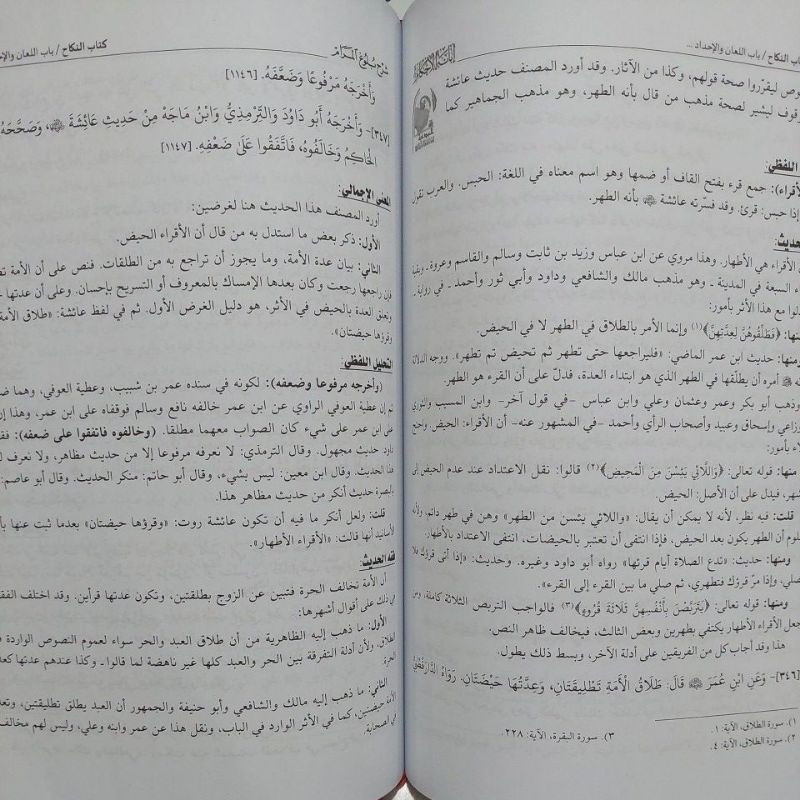 اب النكاح / باب اللعان والإحداد ...
وص ليقرّروا صحة قولهم، وكذا من الآثار. وقد أورد المصنف حديث عائشة
قوف ليشير لصحة مذهب من قال بأنه الطهر، وهو مذهب الجماهير كما
اللفظي:
لأقراء): جمع قرء بفتح القاف أو ضمها وهو اسم معناه في اللغة: الحبس. والعرب تقول
إذا حبس: قرئ. وقد فسرّته عائشة ﷺ بأنه الطهر.
حديث:
الأقراء هي الأطهار. وهذا مروي عن ابن عباس وزيد بن ثابت وسالم والقاسم وعروة ـ وبقية
ء السبعة في المدينة ـ وهو مذهب مالك والشافعي وداود وأبي ثور وأحمد ـ في رواية ـ
دلوا مع هذا الأثر بأمور:
منها: ﴿فَطَلِّقُوهُنَّ لِعِدَّتِهِنَّ﴾(١) وإنما الأمر بالطلاق في الطهر لا في الحيض.
ومنها: حديث ابن عمر الماضي: «فليراجعها حتى تطهر ثم تحيض ثم تطهر». ووجه الدلالة
أمره أن يطلّقها في الطهر الذي هو ابتداء العدة، فدلّ على أن القرء هو الطهر.
وذهب أبو بكر وعمر وعثمان وعلي وابن عباس -في قول آخر- وابن المسيب والثوري
وزاعي وإسحاق وعبيد وأصحاب الرأي وأحمد -في المشهور عنه- أن الأقراء: الحيض. واحتج
لاء بأمور:
منها: قوله تعالى: ﴿وَاللَّائِي يَئِسْنَ مِنَ الْمَحِيضِ﴾(٢) قالوا: نقل الاعتداد عند عدم الحيض إلى
شهر، فيدل على أن الأصل: الحيض.
قلت: فيه نظر، لأنه لا يمكن أن يقال: «واللائي يئسن من الطهر» وهن في طهر دائم، ولأنه
علوم أن الطهر يكون بعد الحيض، فإذا انتفى أن تعتبر بالحيضات، انتفى الاعتداد بالأطهار.
ومنها: حديث: «تدع الصلاة أيام قرئها» رواه أبو داود وغيره. وحديث: «إذا أتى قرؤك فلا
صلي، وإذا مرّ قرؤك فتطهري، ثم صلي ما بين القرء إلى القرء».
ومنها: قوله تعالى: ﴿يَتَرَبَّصْنَ بِأَنْفُسِهِنَّ ثَلَاثَةَ قُرُوءٍ﴾(٣) فالواجب التربص الثلاثة كاملة، ومن
جعل القراء الأطهار يكتفي بطهرين وبعض الثالث، فيخالف ظاهر النص.
هذا وقد أجاب كل من الفريقين على أدلة الآخر، وبسط ذلك يطول.
[٣٤٦]- وَعَنِ ابْنِ عُمَرَ ﷺ قَالَ: طَلَاقُ الْأَمَةِ تَطْلِيقَتَانِ، وَعِدَّتُهَا حَيْضَتَانِ. رَوَاهُ الدَّارَقُطْنِيُّ
١). سورة الطلاق، الآية: ١.
٢). سورة الطلاق، الآية: ٤.
٣). سورة البقرة، الآية: ٢٢٨.
شرح بلوغ المرام
كتاب النكاح / باب اللعان والإح
وَأَخْرَجَهُ مَرْفُوعًا وَضَعَّفَهُ. [١١٤٦]
[٣٤٧]- وَأَخْرَجَهُ أَبُو دَاوُدَ وَالتِّرْمِذِيُّ وَابْنُ مَاجَهْ مِنْ حَدِيثِ عَائِشَةَ ﷺ، وَصَحَّحَهُ
الْحَاكِمُ وَخَالَفُوهُ، فَاتَّفَقُوا عَلَى ضَعْفِهِ. [١١٤٧]
المعنى الإجمالي:
أورد المصنف هذا الحديث هنا لغرضين:
الأول: ذكر بعض ما استدل به من قال أن الأقراء الحيض.
الثاني: بيان عدة الأمة، وما يجوز أن تراجع به من الطلقات. فنص على أن الأمة تط
فإن راجعها رجعت وكان بعدها الإمساك بالمعروف أو التسريح بإحسان. وعلى أن عدتها -
وتعلق العدة بالحيض في الأثر، هو دليل الغرض الأول. ثم في لفظ عائشة: «طلاق الأمة
وقرؤها حيضتان».
التحليل اللفظي:
(وأخرجه مرفوعا وضعفه): لكونه في سنده عمر بن شبيب، وعطية العوفي، وهما ضع
ثم إن عطية العوفي الراوي عن ابن عمر خالفه نافع وسالم فوقفاه على ابن عمر، وهذا إن
على ابن عمر على شيء كان الصواب معهما مطلقا. (وخالفوه فاتفقوا على ضعفه): فقا
داود حديث مجهول. وقال الترمذي: لا نعرفه مرفوعا إلا من حديث مظاهر، ولا نعرف له
هذا الحديث. وقال ابن معين: ليس بشيء، وقال أبو حاتم: منكر الحديث. وقال أبو عاصم: ل
بالبصرة حديث أنكر من حديث مظاهر هذا.
قلت: ولعل أنكر ما فيه أن تكون عائشة روت: «وقرؤها حيضتان» بعدما ثبت عنها بأ
الأسانيد أنها قالت: «الأقراء الأطهار».
فقه الحديث:
أن الأمة تخالف الحرة فتبين عن الزوج بطلقتين، وتكون عدتها قرأين. وقد اختلف الفقه
في ذلك على أقوال أشهرها:
الأول: ما ذهب إليه الظاهرية من أن طلاق العبد والحر سواء لعموم النصوص الواردة في
الطلاق. ولأن أدلة التفرقة بين الحر والعبد كلها غير ناهضة لما قالوا- وكذا عندهم عدتها كعدة
الحرة.
الثاني: ما ذهب إليه مالك والشافعي وأبو حنيفة والجمهور أن العبد يطلق تطليقتين، وتعتد
الأمة حيضتين، كما في الأثر الوارد في الباب، ونقل هذا عن عمر وابنه وعلي، وليس لهم مخالف
في الصحابة.